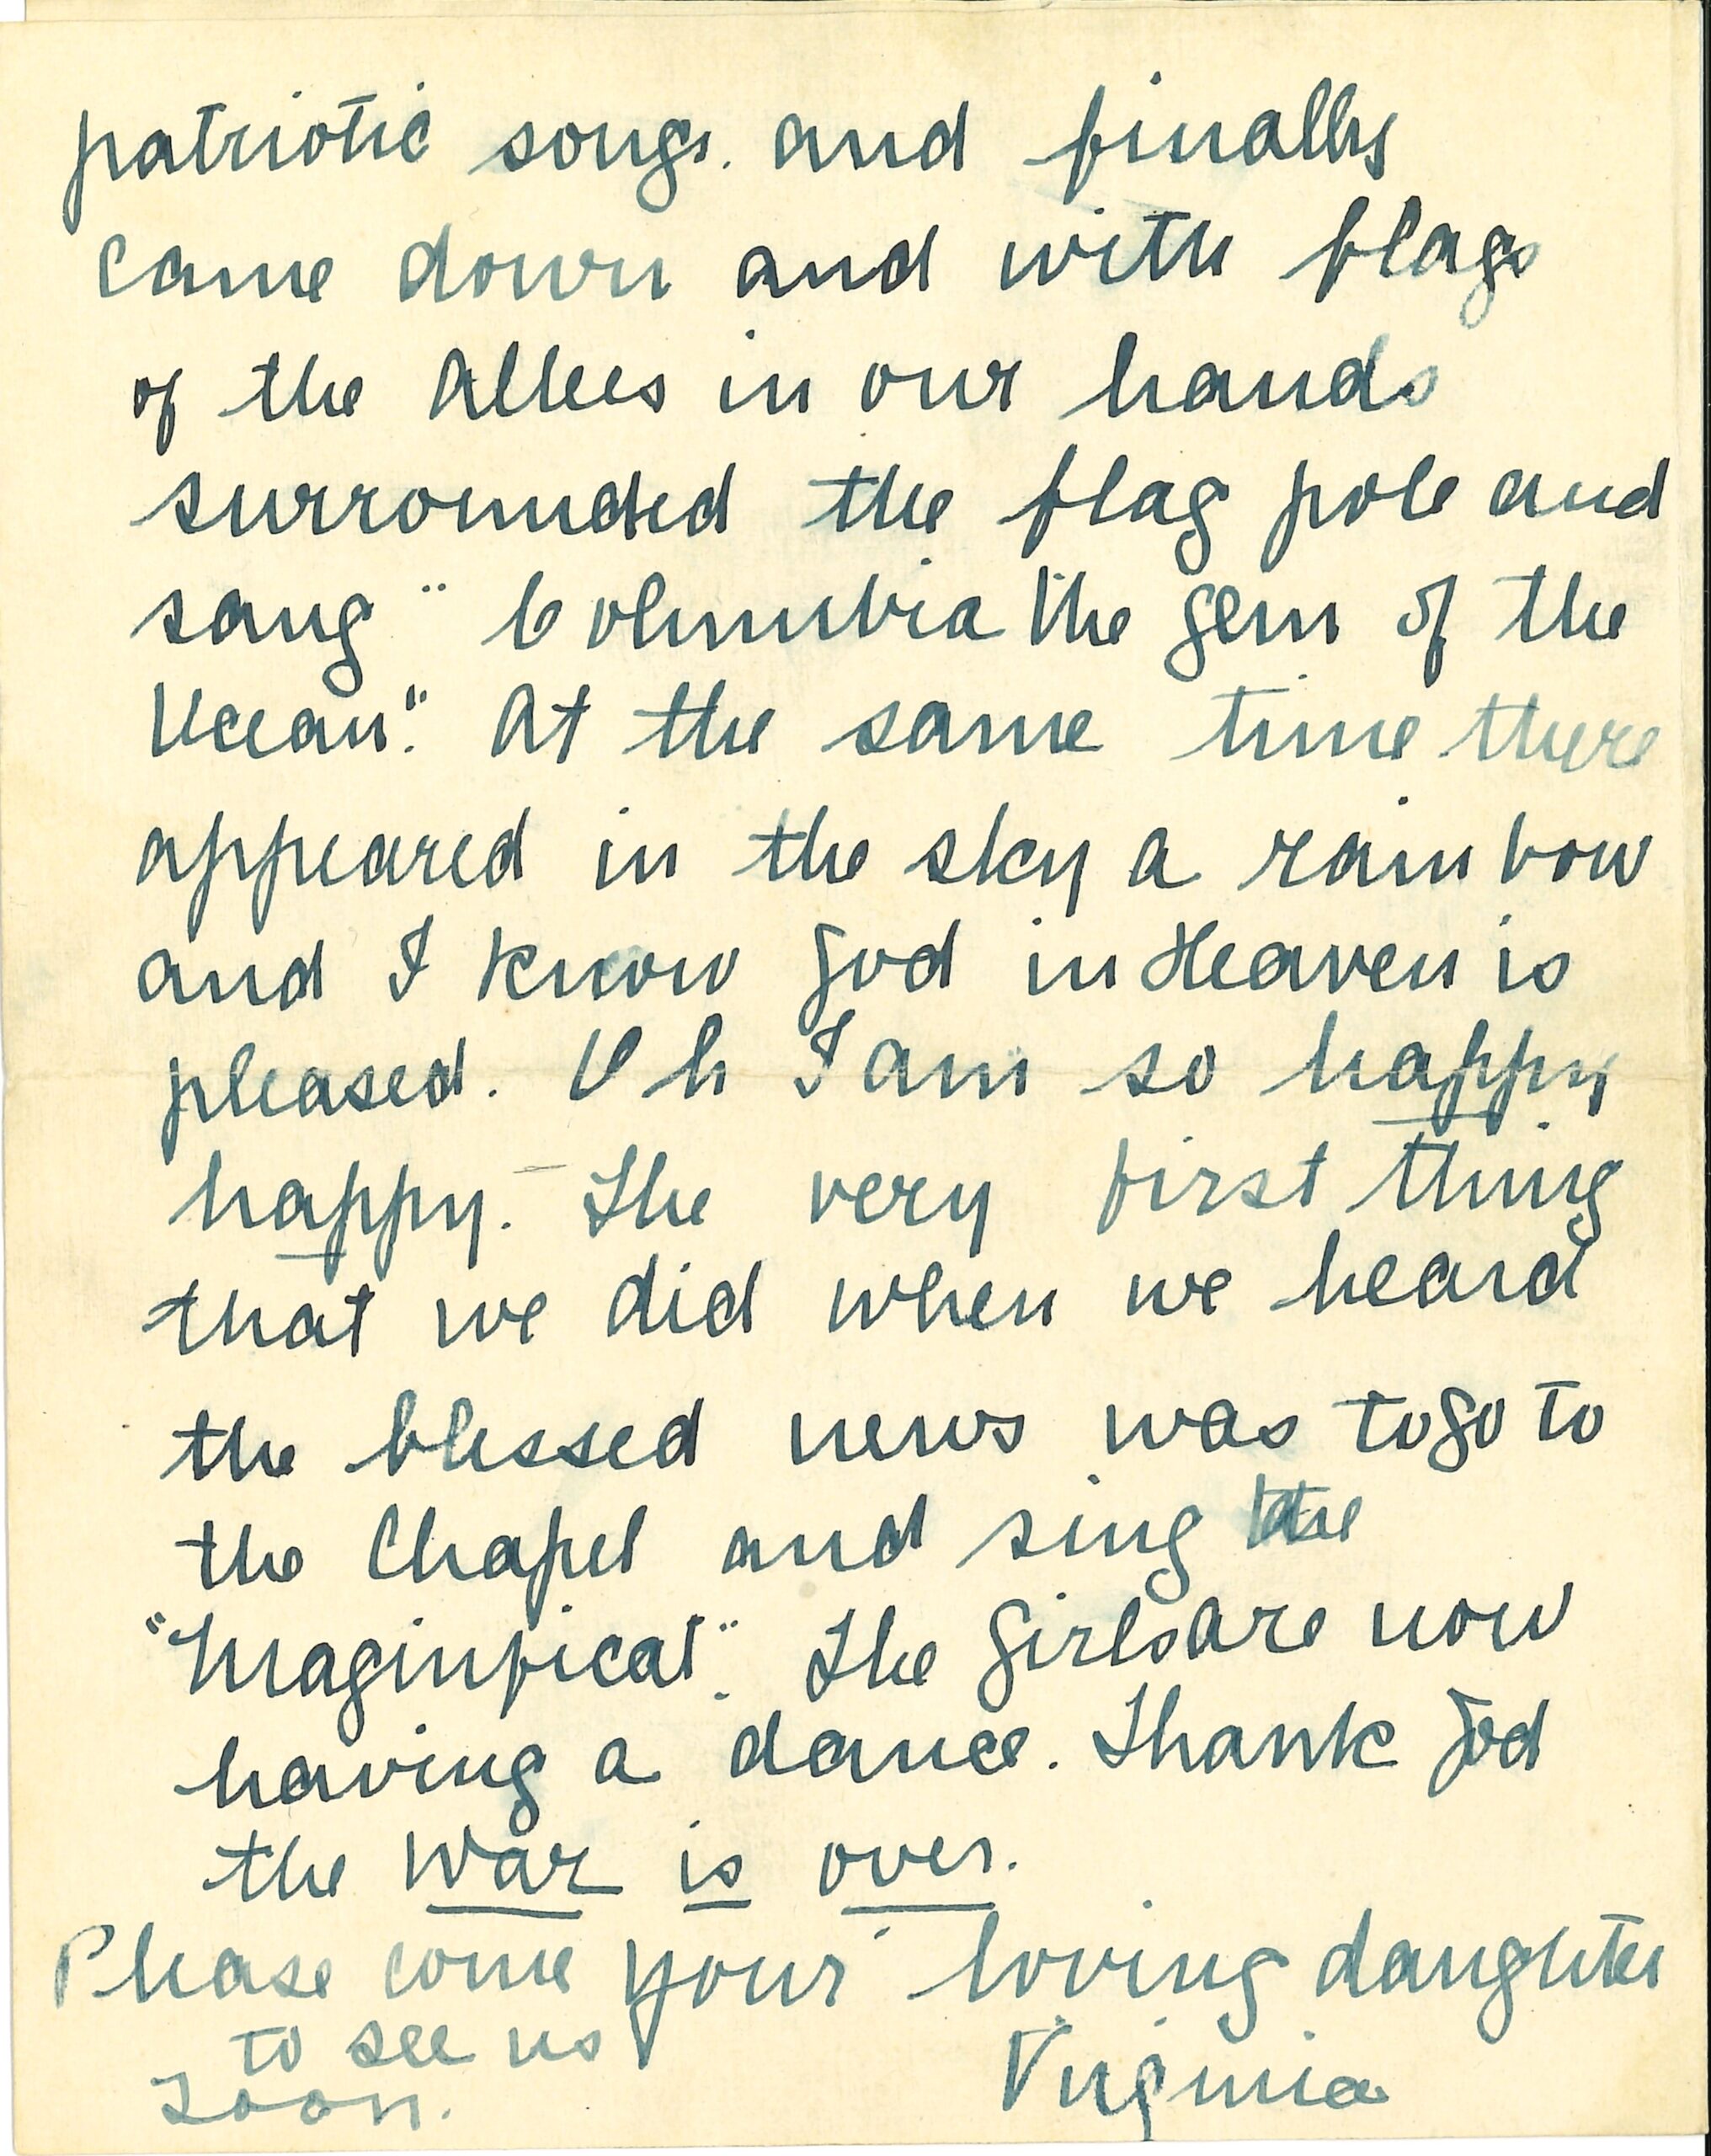 patriotic songs. and finally
came down and with flags
of the Allies in our hands
surrounded the flag pole and
sang "Columbia the gem of the
Ocean". At the same time there
appeared in the sky a rainbow
and I know God in Heaven is
pleased. Oh I am so happy
happy. - The very first thing
that we did when we heard
the blessed news was to go to
the Chapel and sing the
"Maginificat". The girls are now
having a dance. Thank God
the war is over.
Please come your loving daughter
to see us
soon.
Virginia